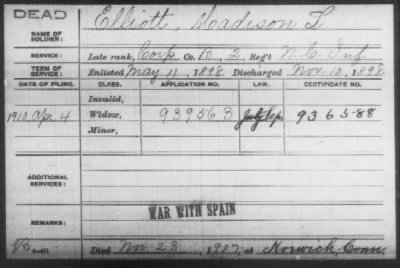 DEAD
NAME OF SOLDIER: Elliott, Madison L.
SERVICE: Late rank, Corp Co. B, 2 Reg't N.C. Inf.
TERM OF SERVICE: Enlisted May 11, 1898 Discharged Nov. 10, 1898
DATE OF FILING. CLASS. APPLICATION NO. LAW. CERTIFICATE NO.
Invalid,
1910 Apr. 4 Widow, 939563 9365-88
Minor,
ADDITIONAL SERVICES:
REMARKS:
WAR WITH SPAIN
Died Nov 28, 1907, at Norwich, Conn.